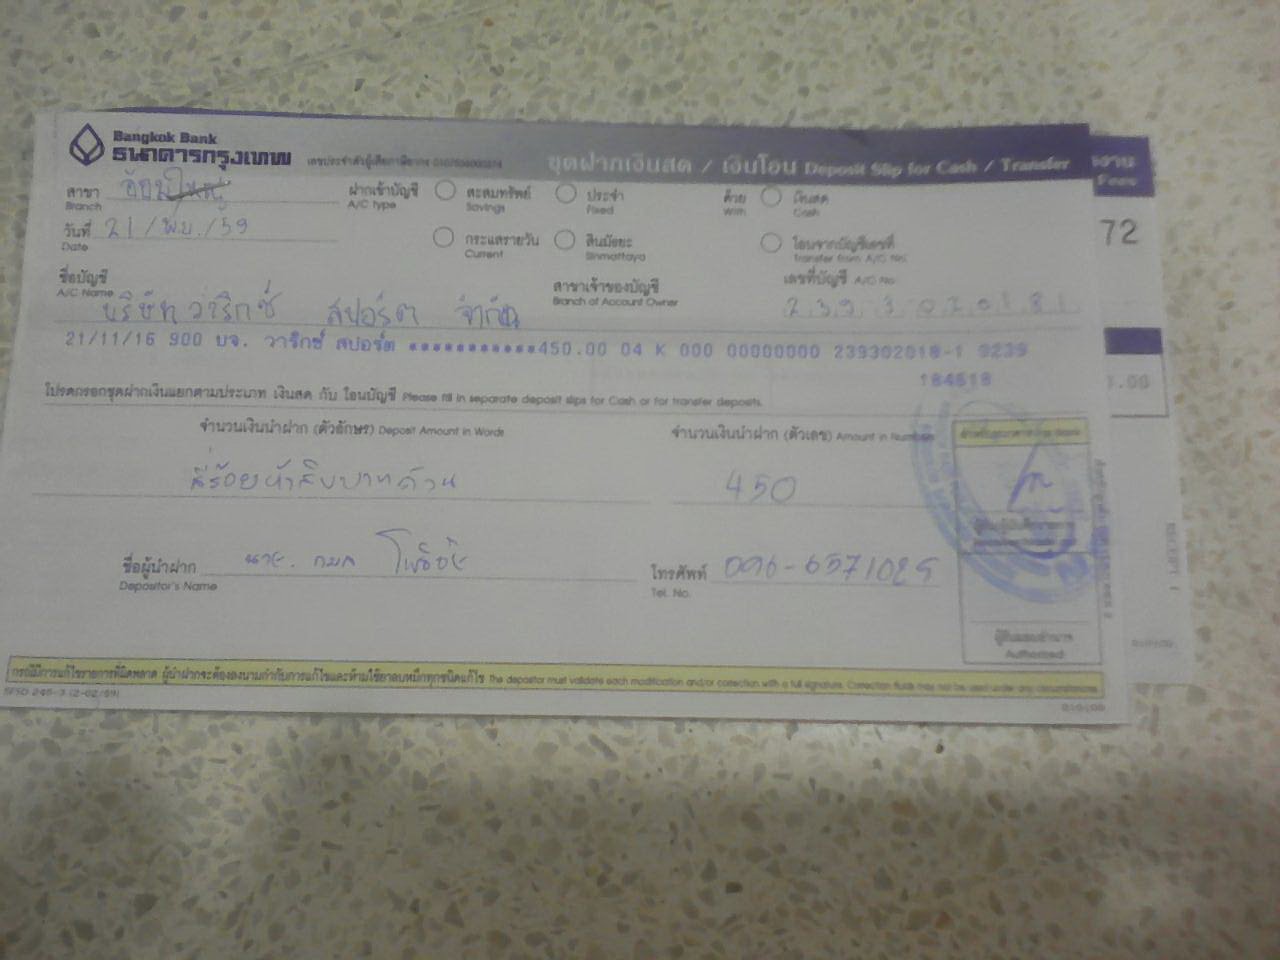 Bangkok Bank
ธนาคารกรุงเทพ
ชุดฝากเงินสด / เงินโอน Deposit Slip for Cash / Transfer
สาขา
Branch
ฝากเข้าบัญชี
A/C type
สะสมทรัพย์
Savings
ประจำ
Fixed
ด้วย
With
เงินสด
Cash
72
วันที่ 21/พ.ย./59
Date
กระแสรายวัน
Current
สินมัธยะ
Sinmattaya
โอนจากบัญชีเลขที่
Transfer from A/C No.
ชื่อบัญชี
A/C Name
บริษัท วาริกซ์ สปอร์ต จำกัด
สาขาเจ้าของบัญชี
Branch of Account Owner
เลขที่บัญชี A/C No.
2393020181
21/11/16 900 บจ. วาริกซ์ สปอร์ต ************450.00 04 K 000 00000000 239302018-1 9239
184618
โปรดกรอกชุดฝากเงินแยกตามประเภท เงินสด กับ โอนบัญชี Please fill in separate deposit slips for Cash or for transfer deposits.
จำนวนเงินนำฝาก (ตัวอักษร) Deposit Amount in Words
จำนวนเงินนำฝาก (ตัวเลข) Amount in Numbers
สี่ร้อยห้าสิบบาทถ้วน
450
ชื่อผู้นำฝาก นาย. กมล
Depositor's Name
โทรศัพท์ 096-6571029
Tel. No.
ผู้รับมอบอำนาจ
Authorized
กรณีมีการแก้ไขรายการที่ผิดพลาด ผู้นำฝากจะต้องลงนามกำกับการแก้ไขและห้ามใช้ยาลบหมึกทุกชนิดแก้ไข The depositor must validate each modification and/or correction with a full signature. Correction fluids may not be used under any circumstances.